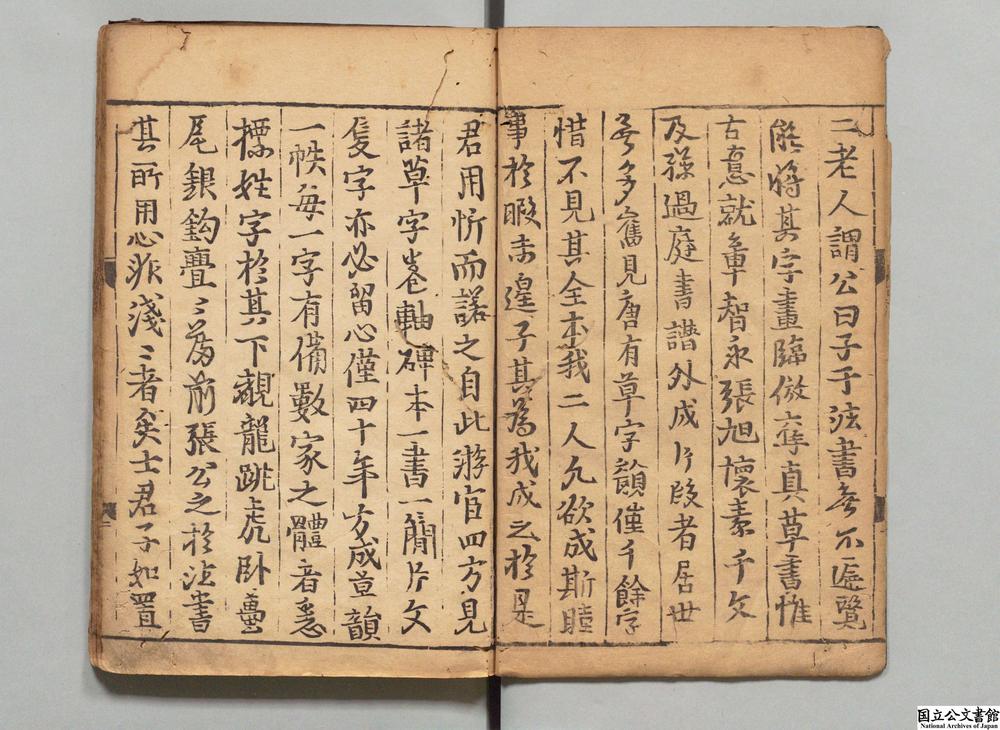 二老人謂公曰子于法書無不遍覽
能將其字畫臨倣奪真草書惟
古意就章智永張旭懷素千文
及孫過庭書譜外成片段者居世
無多舊見唐有草字韻僅千餘字
惜不見其全本我二人久欲成斯
事於暇未遑子其為我成之於是
君用忻而諾之自此游宦四方見
諸草字卷軸碑本一書一簡片文
隻字亦必留心僅四十年方成草韻
一帙每一字有備數家之體者悉
摽姓字於其下觀龍跳虎卧蠆
尾銀鈎疊〻為前張公之於法書
其所用心非淺〻者矣士君子如置
国立公文書館
National Archives of Japan